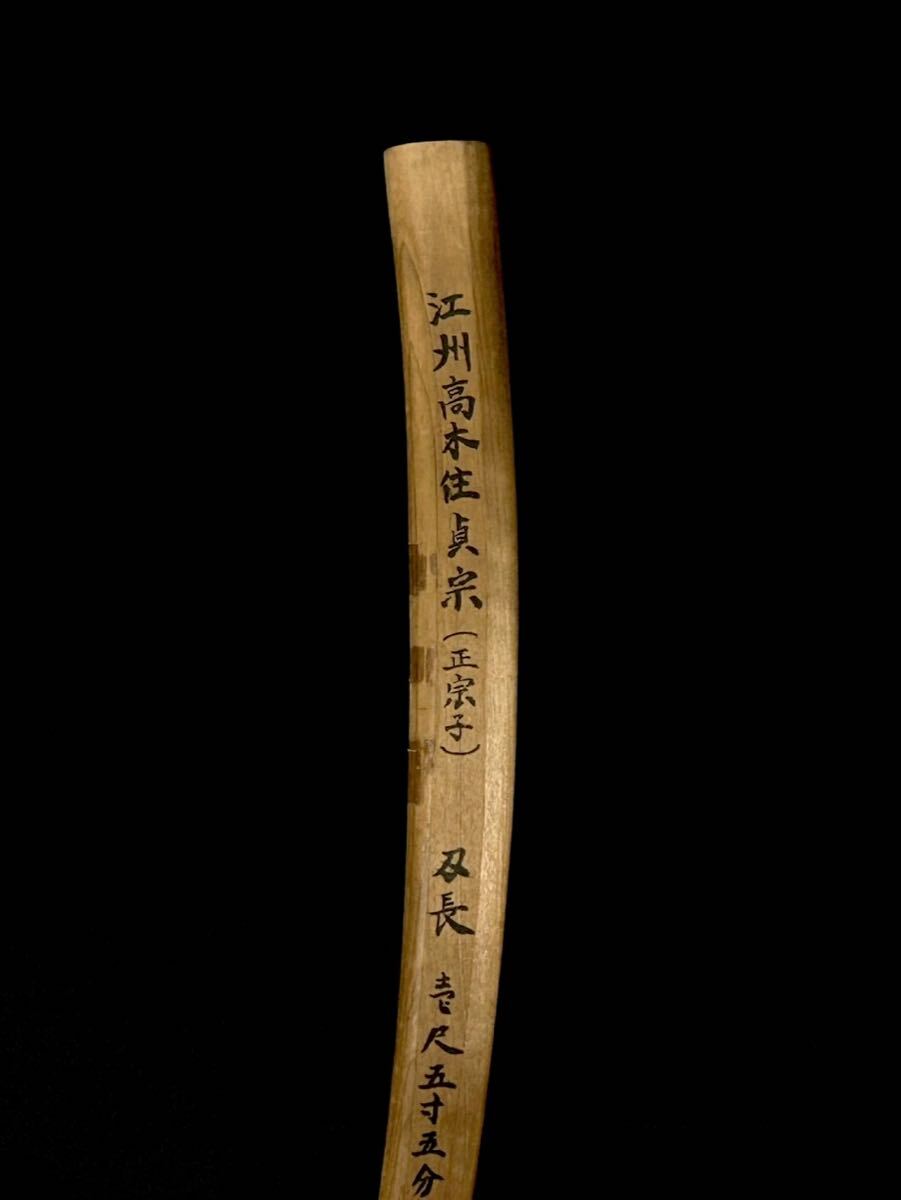 江州高木住貞宗（正宗子）　刄長　壱尺五寸五分